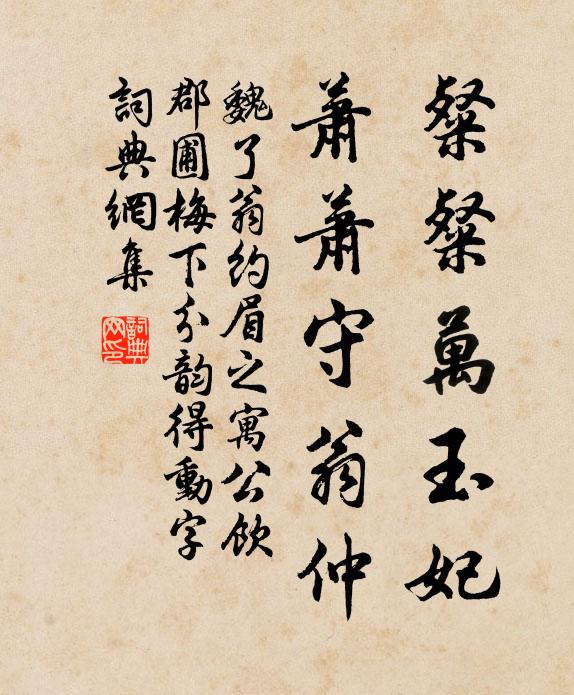 粲粲萬玉妃
蕭蕭守翁仲
魏了翁約眉之寓公飲
郡圃梅下分韵得動字
詞典網集
詞典网印